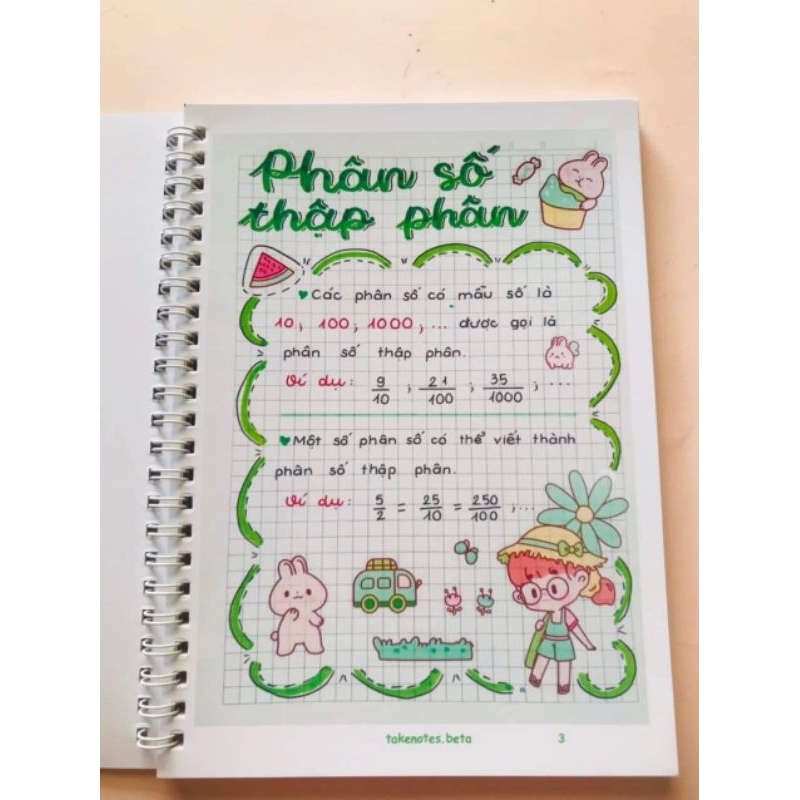 Phân số
thập phân
Các phân số có mẫu số là
10, 100, 1000, ... được gọi là
phân số thập phân.
Ví dụ: 9/10 ; 21/100 ; 35/1000 ; ...
Một số phân số có thể viết thành
phân số thập phân.
Ví dụ: 5/2 = 25/10 = 250/100 ; ...
takenotes.beta 3